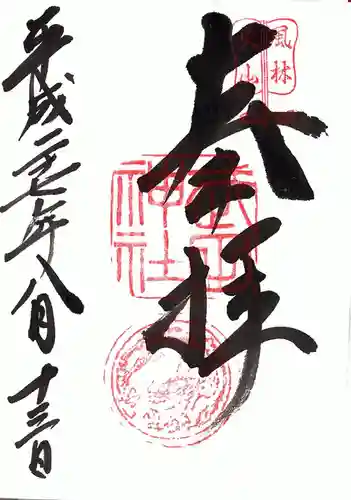 風林
火山
奉拝
武田
神社
平成二七年八月十三日